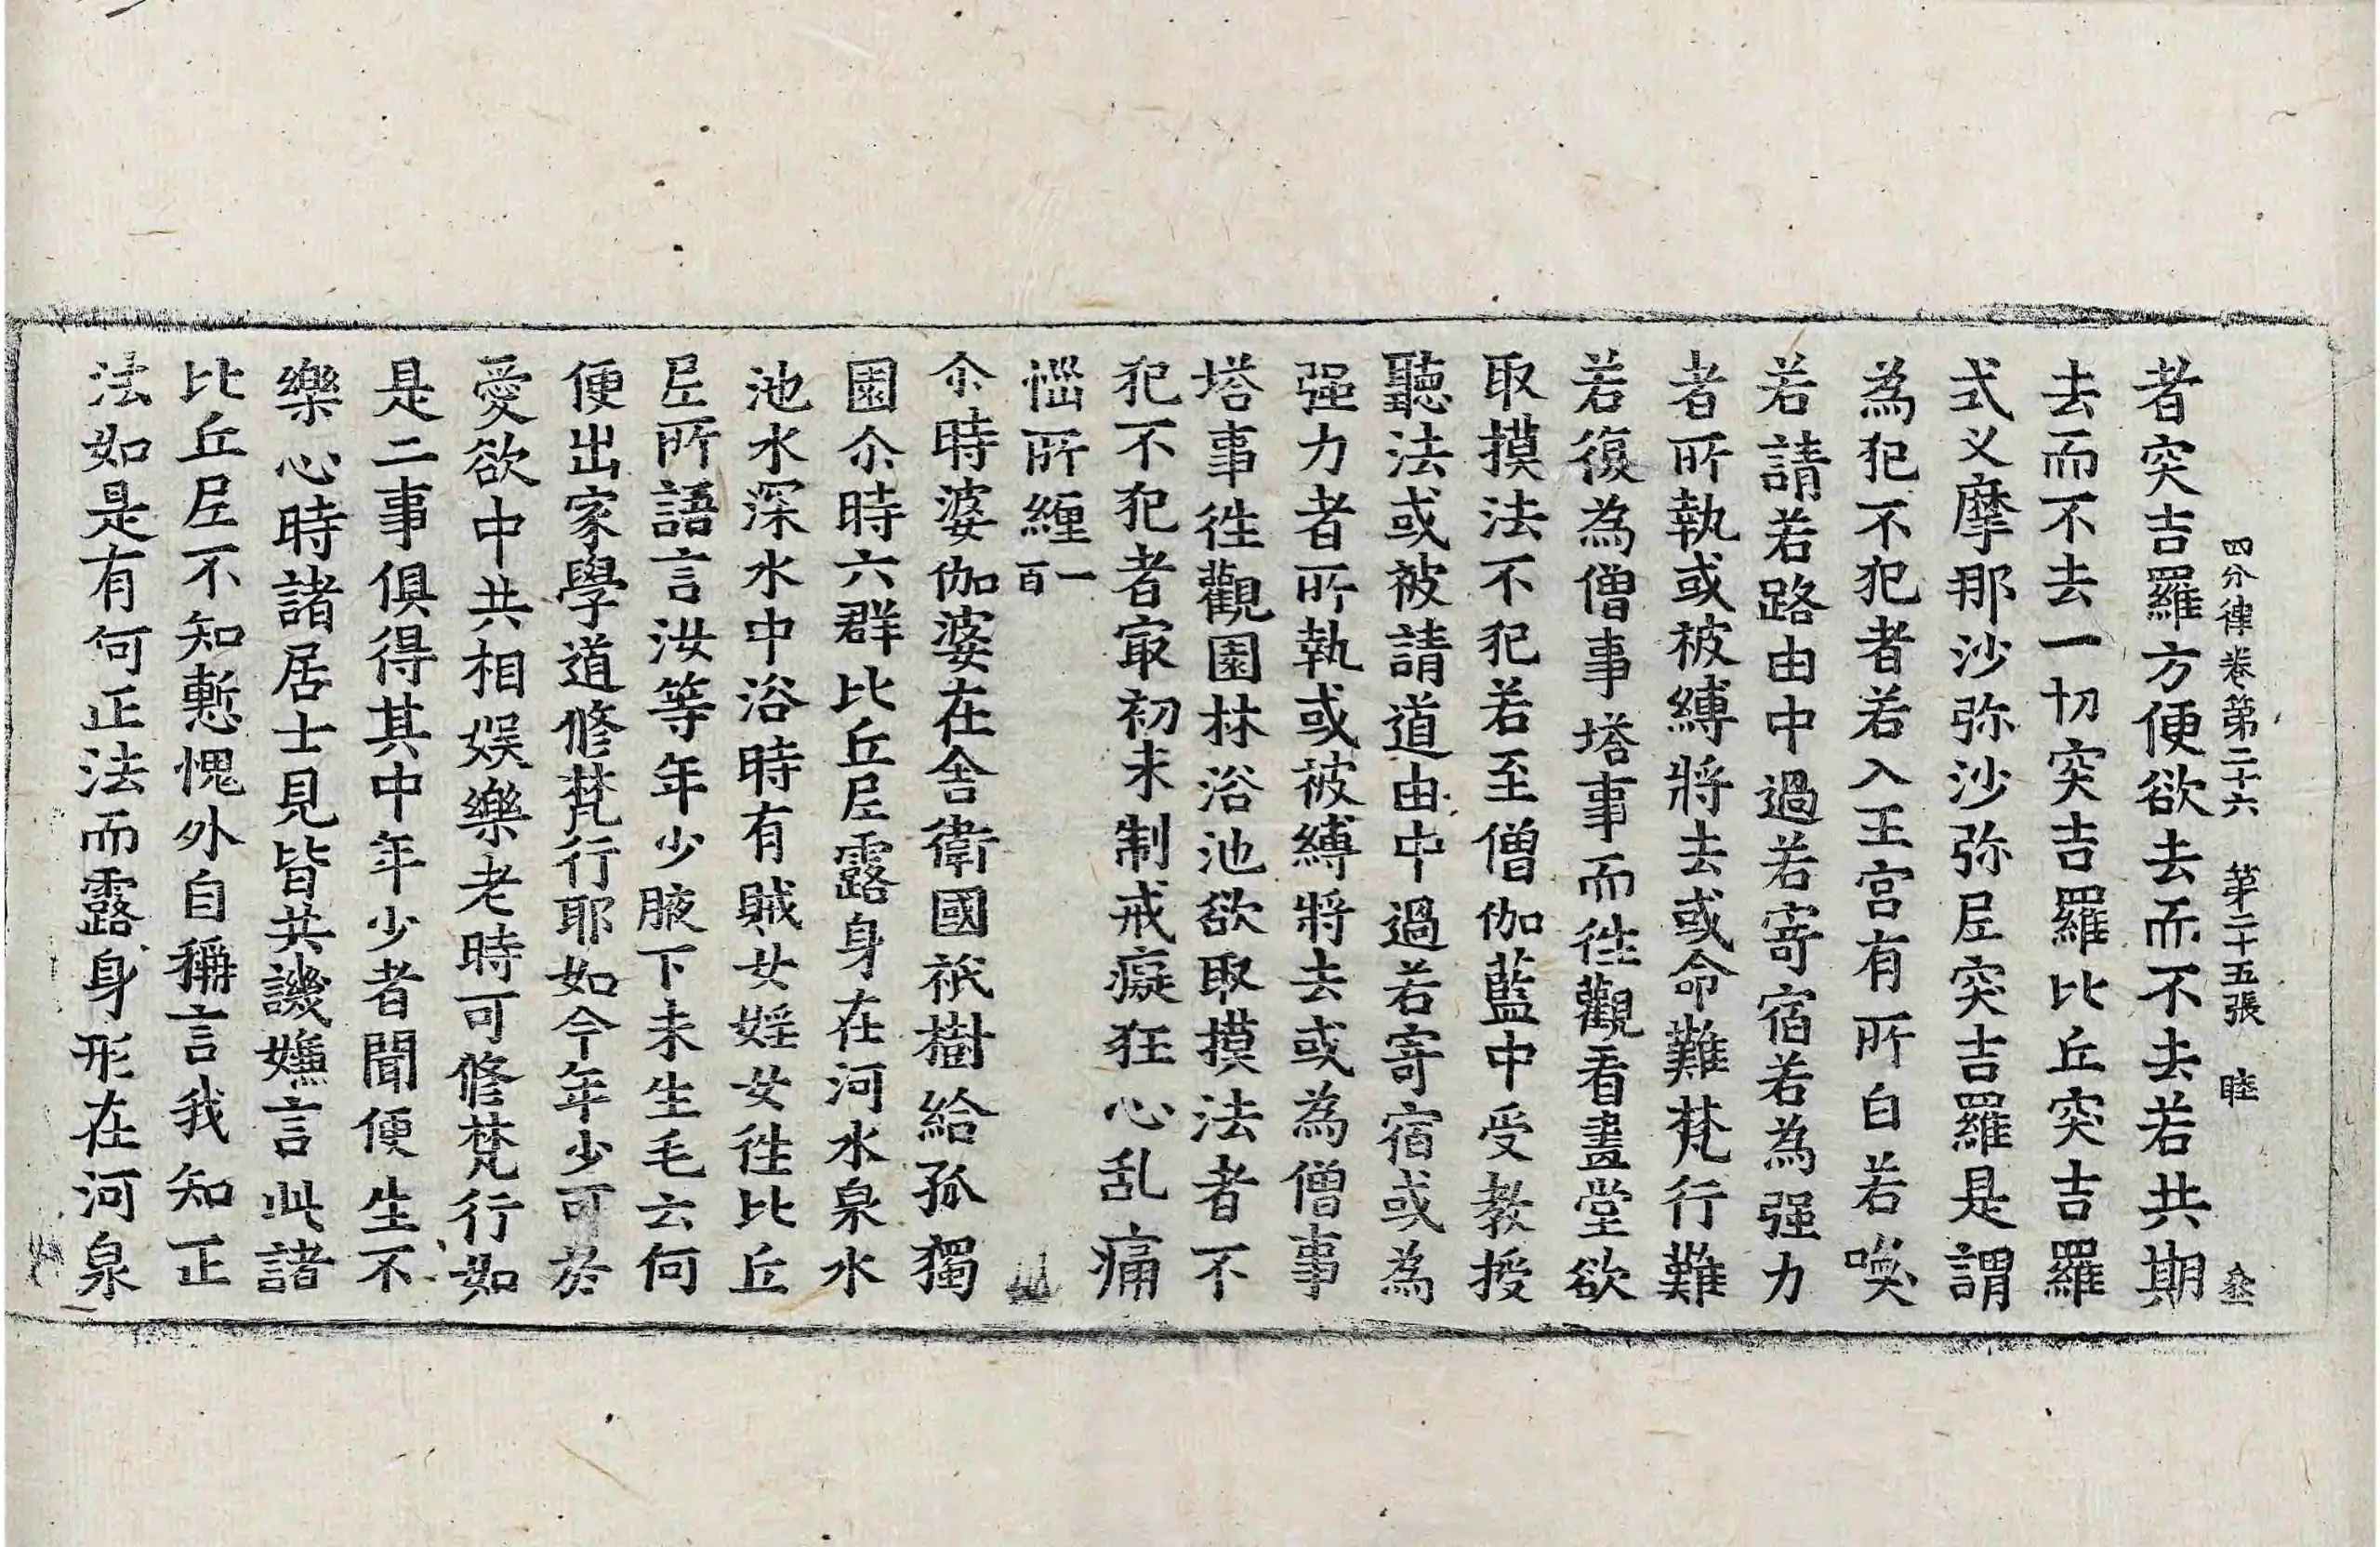 四分律卷第二十六 第二十五張 睦
者突吉羅方便欲去而不去若共期
去而不去一切突吉羅比丘突吉羅
式叉摩那沙弥沙弥尼突吉羅是謂
為犯不犯者若入王宫有所白若喚
若請若路由中過若寄宿若為强力
者所執或被縛將去或命難梵行難
若復為僧事塔事而徃觀看畫堂欲
取摸法不犯若至僧伽藍中受教授
聽法或被請道由中過若寄宿或為
强力者所執或被縛將去或為僧事
塔事徃觀園林浴池欲取摸法者不
犯不犯者㝡初未制戒癡狂心乱痛
惱所纏一百
尒時婆伽婆在舍衛國祇樹給孤獨
園尒時六群比丘尼露身在河水泉水
池水深水中浴時有賊女婬女徃比丘
尼所語言汝等年少腋下未生毛云何
便出家學道修梵行耶如今年少可於
愛欲中共相娱樂老時可修梵行如
是二事俱得其中年少者聞便生不
樂心時諸居士見皆共譏嫌言此諸
比丘尼不知慙愧外自稱言我知正
法如是有何正法而露身形在河泉